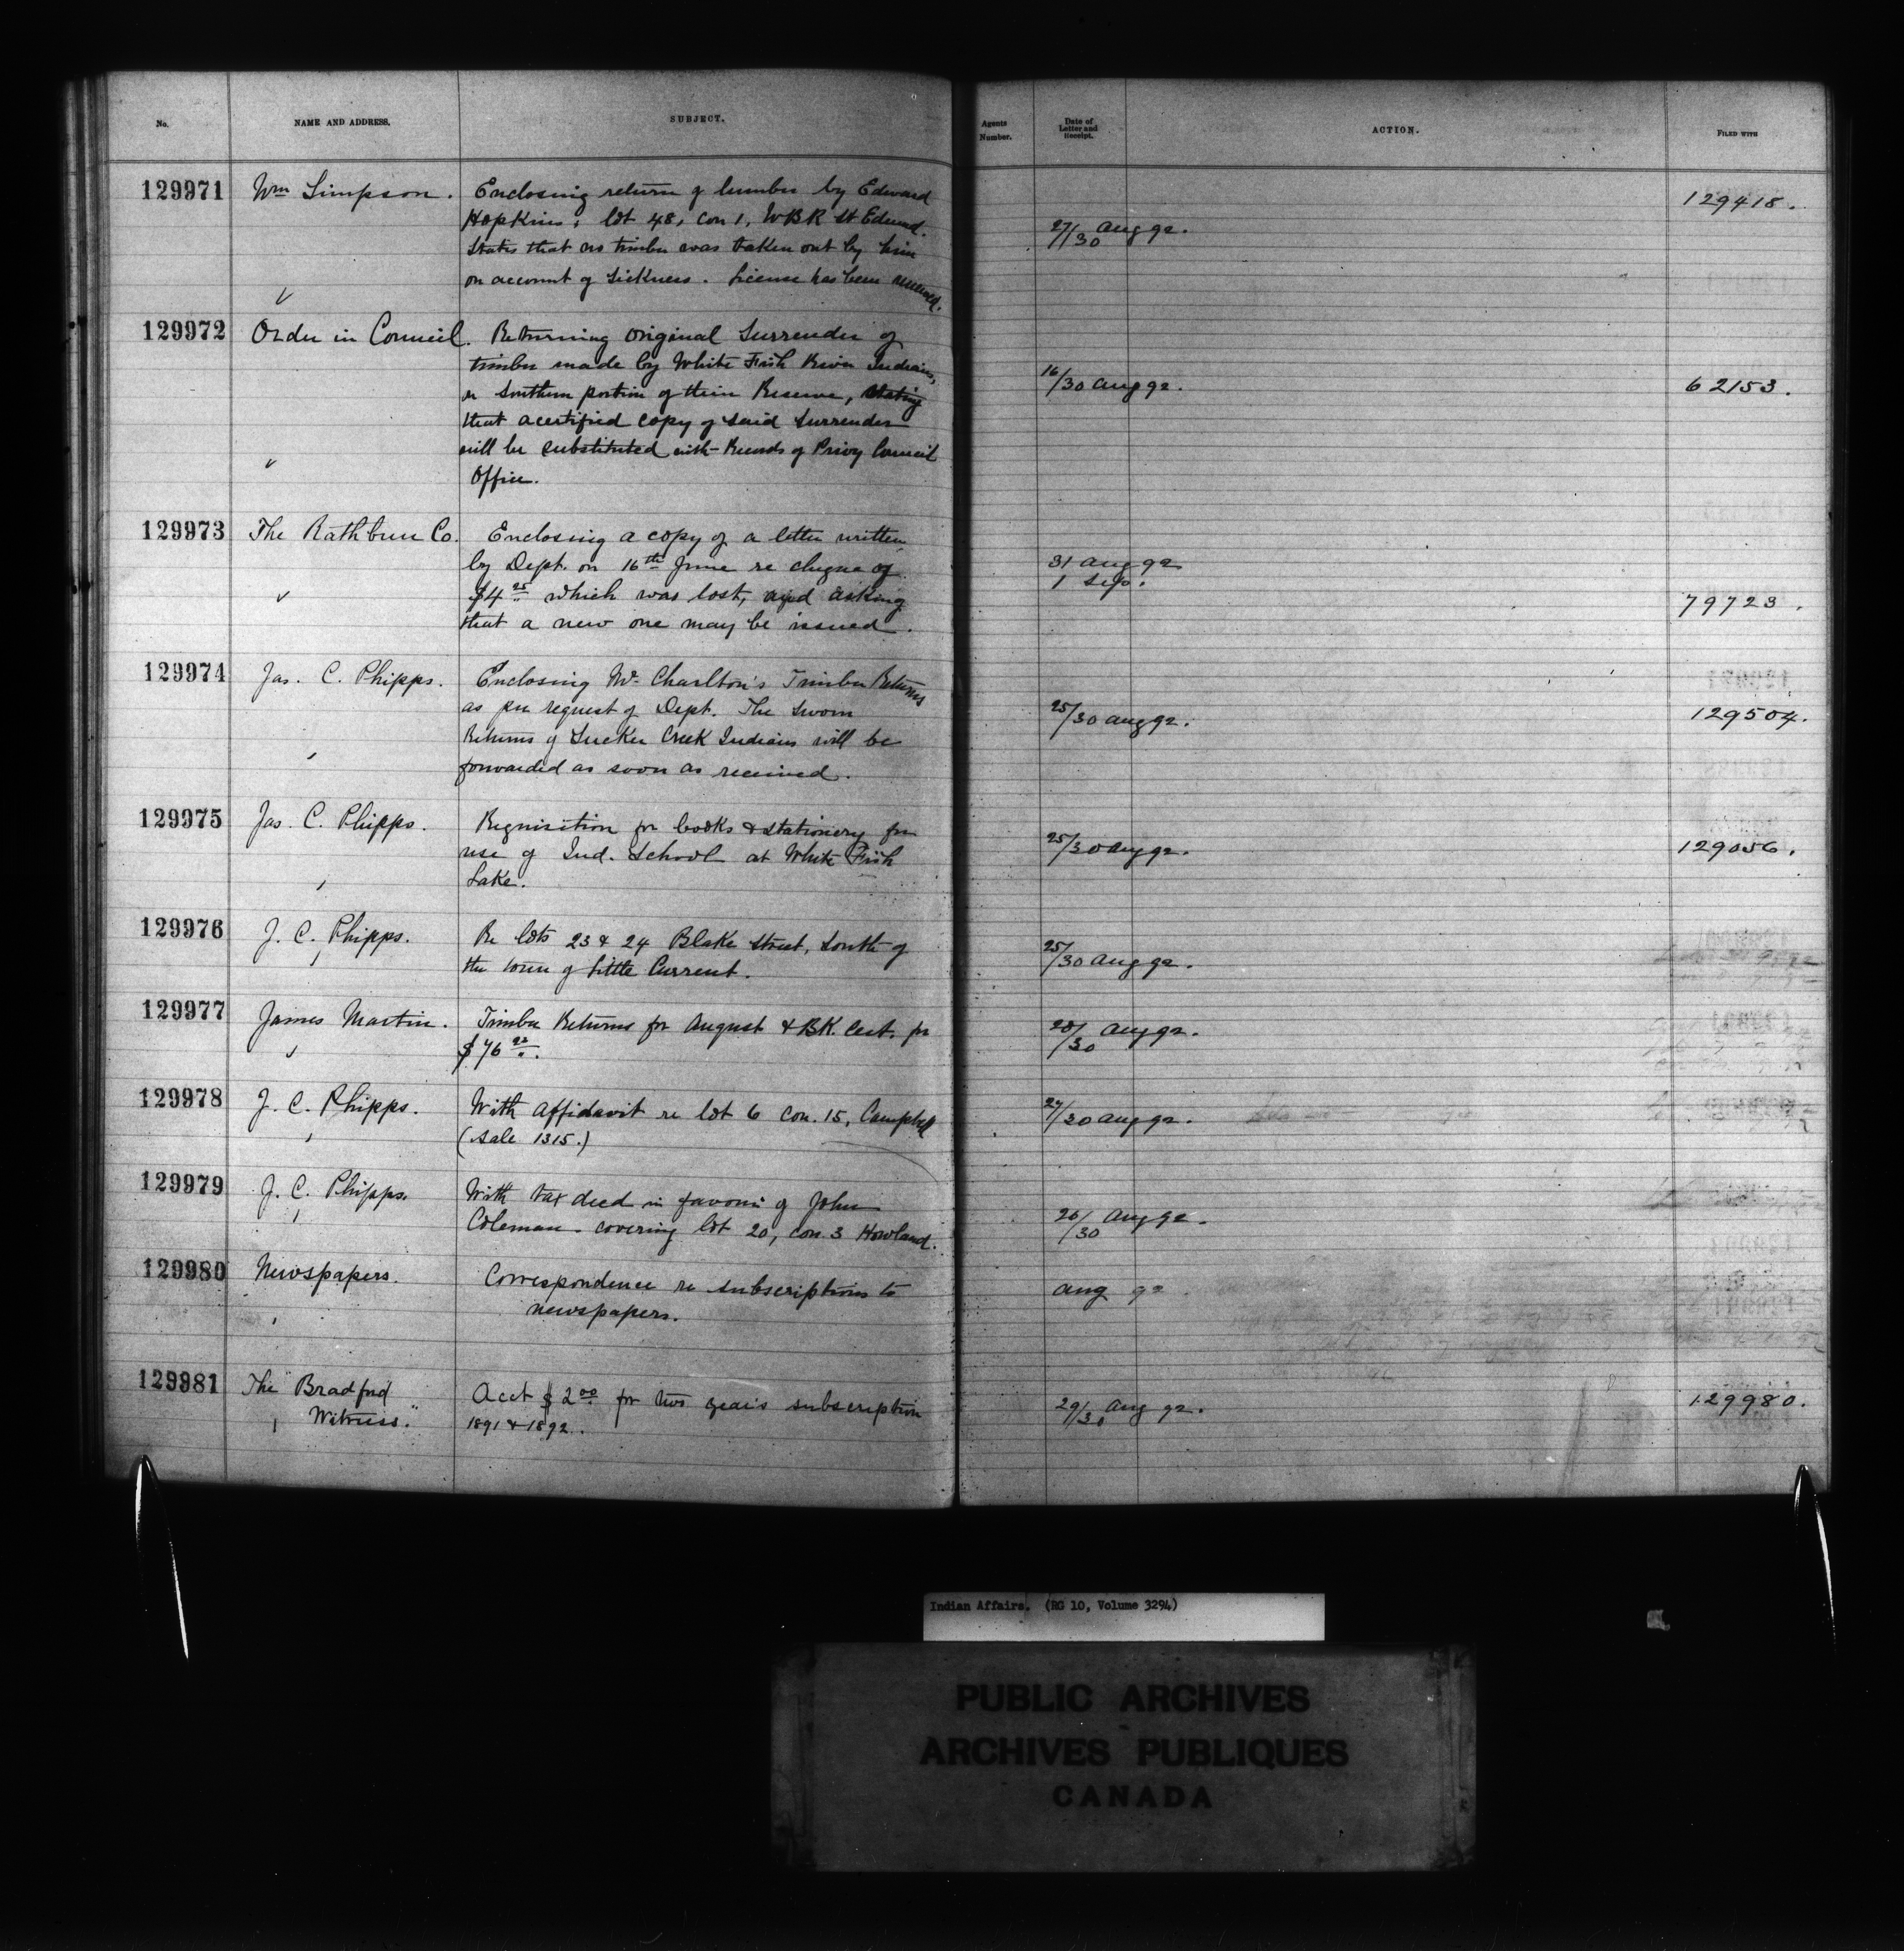 No. NAME AND ADDRESS. SUBJECT. Agents Number. Date of Letter and Receipt. ACTION. FILED WITH
129971 Wm Simpson. Enclosing return of lumber by Edward
Hopkins; lot 48, con 1, WBR St Edmd. 27/30 Aug 92. 129418.
States that no timber was taken out by him
on account of sickness. License has been
129972 Order in Council. Returning original Surrender of
timber made by White Fish River Indians,
on Southern portion of their Reserve, stating 16/30 Aug 92. 62153.
that a certified copy of said Surrender
will be substituted with Records of Privy Council
Office.
129973 The Rathbun Co. Enclosing a copy of a letter written
by Dept. on 16th June re cheque of 31 Aug 92
$4 25 which was lost, and asking 1 Sep. 79723.
that a new one may be issued.
129974 Jas. C. Phipps. Enclosing Mr. Charlton's Timber Returns
as per request of Dept. The sworn 25/30 Aug 92. 129504.
Returns of Sucker Creek Indians will be
forwarded as soon as received.
129975 Jas. C. Phipps. Requisition for books & stationery for
use of Ind. School at White Fish 25/30 Aug 92. 129056.
Lake.
129976 J. C. Phipps. Re lots 23 & 24 Blake Street, South of
the town of Little Current. 25/30 Aug 92.
129977 James Martin. Timber Returns for August & BK. Cert. for 28/30 Aug 92.
$76 92.
129978 J. C. Phipps. With affidavit re lot 6 con. 15, Campbell 27/30 Aug 92.
(Sale 1315.)
129979 J. C. Phipps. With tax deed in favour of John
Coleman covering lot 20, con. 3 Howland. 26/30 Aug 92.
129980 Newspapers. Correspondence re subscriptions to Aug 92.
newspapers.
129981 The "Bradford Acct $2 00 for two years subscription 29/30 Aug 92. 129980.
Witness." 1891 & 1892.
Indian Affairs. (RG 10, Volume 3294)
PUBLIC ARCHIVES
ARCHIVES PUBLIQUES
CANADA